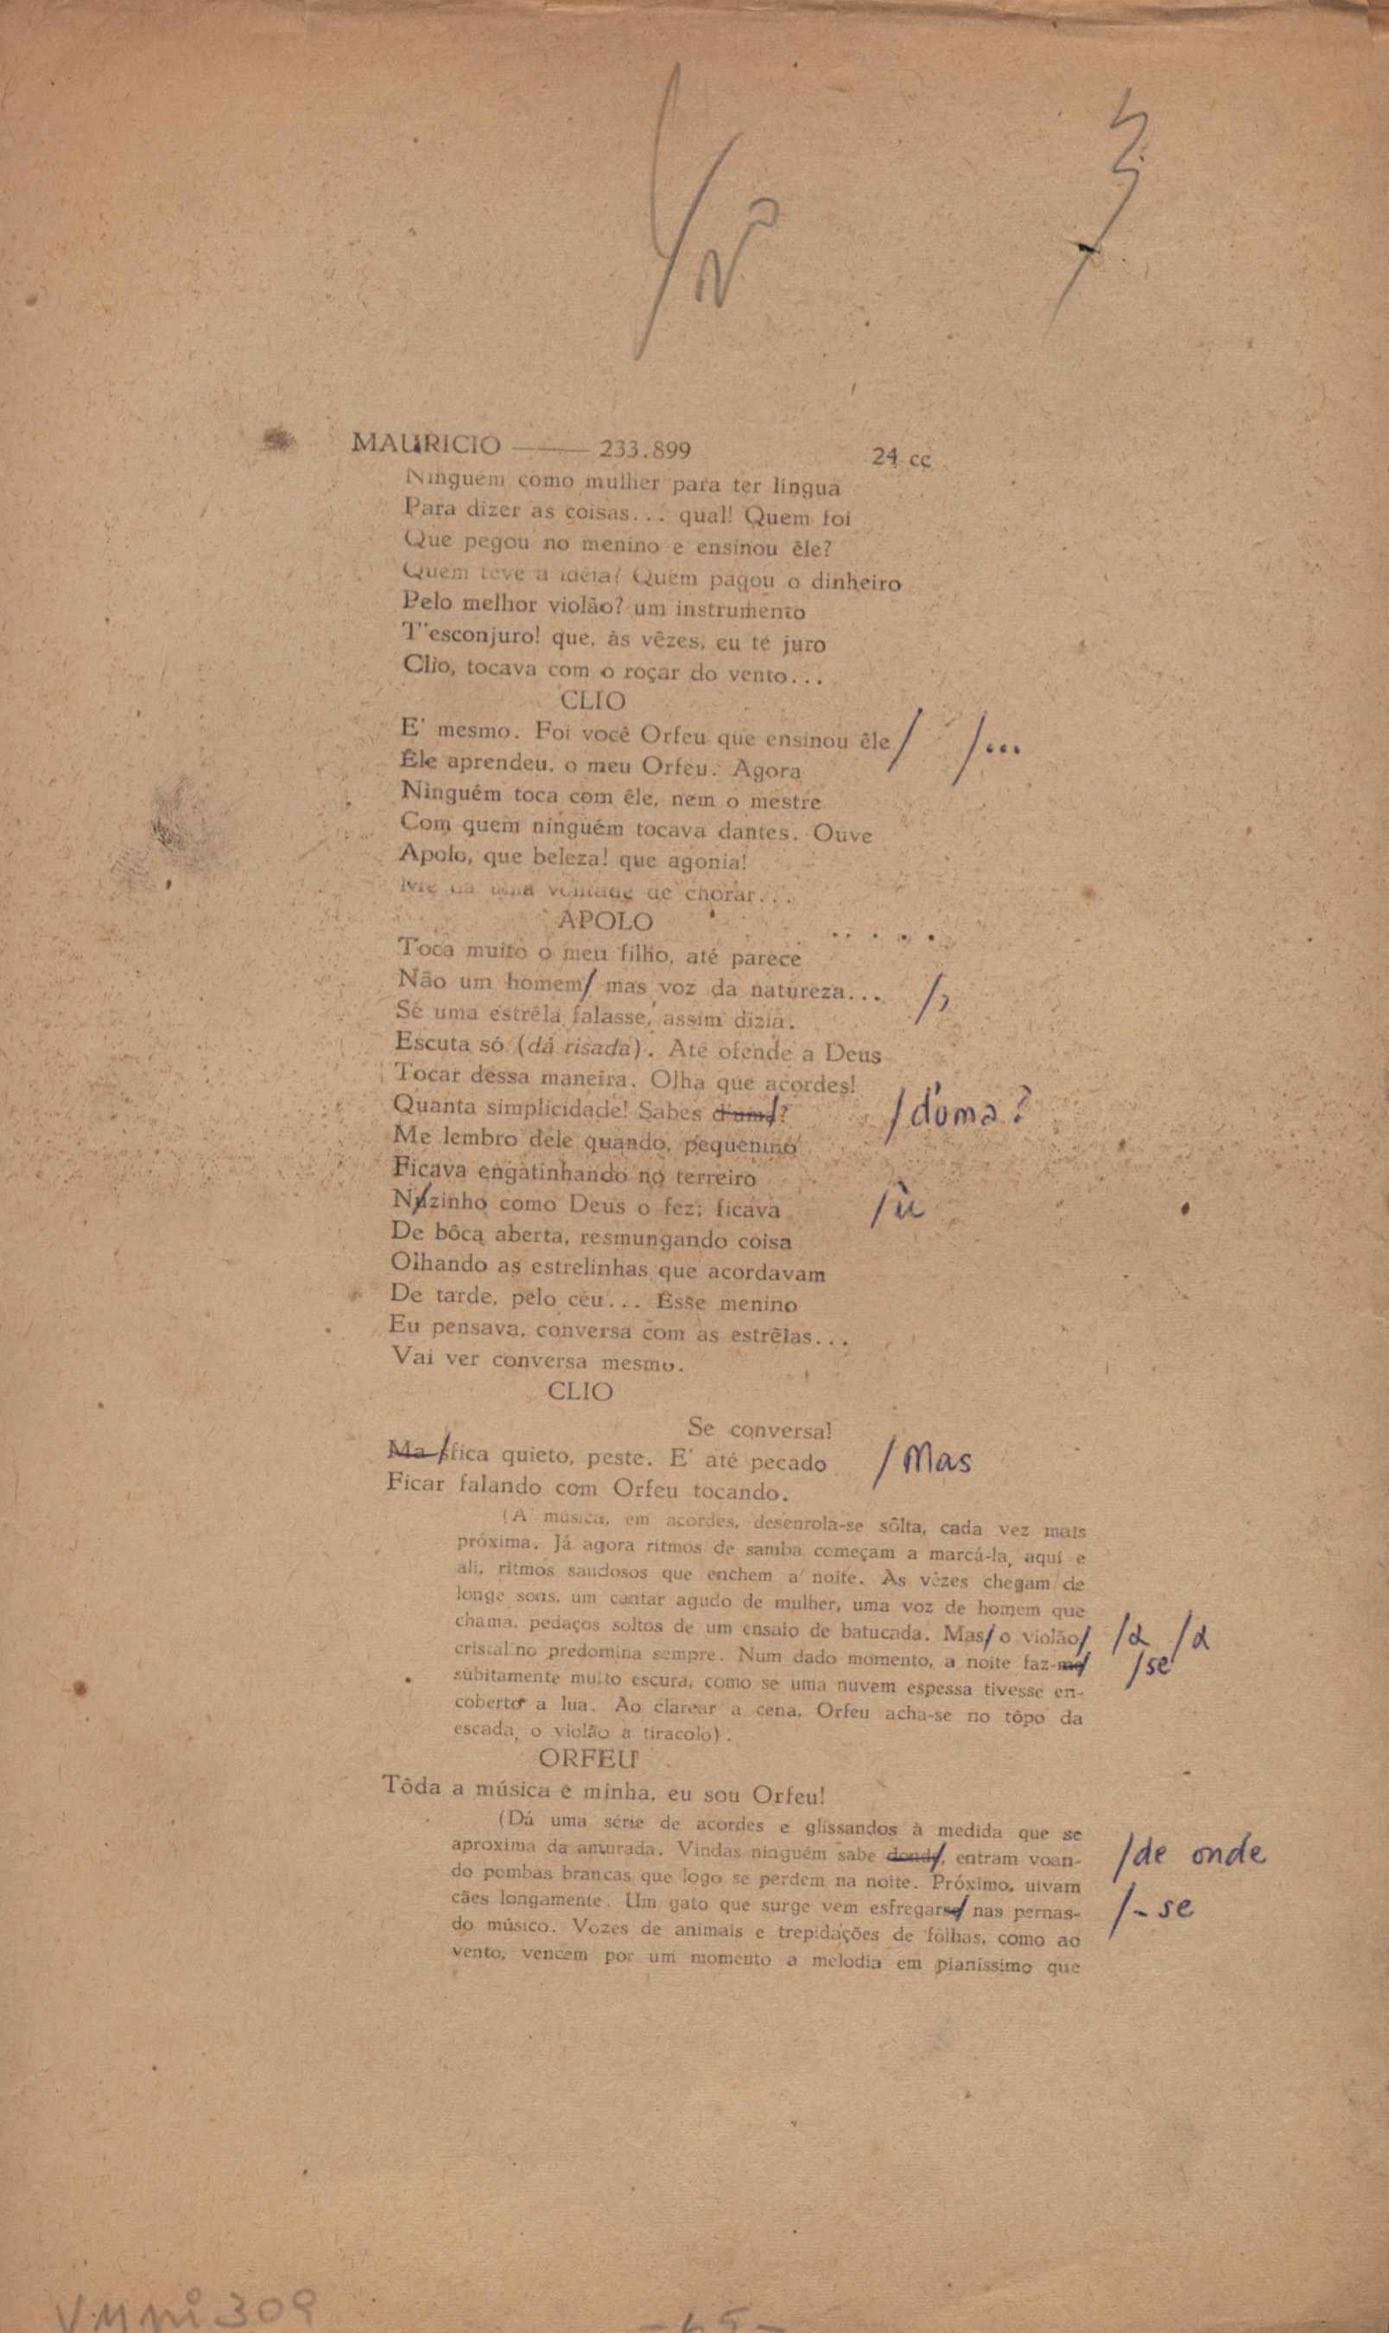 MAURICIO —— 233.899 24 cc
Ninguem como mulher para ter lingua
Para dizer as coisas... qual! Quem foi
Que pegou no menino e ensinou êle?
Quem teve a idéia? Quem pagou o dinheiro
Pelo melhor violão? um instrumento
T"esconjuro! que, às vêzes, eu te juro
Clio, tocava com o roçar do vento...
CLIO
E' mesmo. Foi você Orfeu que ensinou êle/ /...
Êle aprendeu, o meu Orfeu. Agora
Ninguém toca com êle, nem o mestre
Com quem ninguém tocava dantes. Ouve
Apolo, que beleza! que agonia!
Me dá uma vontade de chorar...
APOLO
Toca muito o meu filho, até parece
Não um homem/ mas voz da natureza... /,
Se uma estrêla falasse, assim dizia.
Escuta só (dá risada). Até ofende a Deus
Tocar dessa maneira. Olha que acordes!
Quanta simplicidade! Sabes d'um/? /d'uma?
Me lembro dele quando, pequenino
Ficava engatinhando no terreiro
Nùzinho como Deus o fez; ficava /ù
De bôca aberta, resmungando coisa
Olhando as estrelinhas que acordavam
De tarde, pelo céu... Êsse menino
Eu pensava, conversa com as estrêlas...
Vai ver conversa mesmo.
CLIO
Se conversa!
Ma /fica quieto, peste. E' até pecado /Mas
Ficar falando com Orfeu tocando.
(A música, em acordes, desenrola-se sôlta, cada vez mais
próxima. Já agora ritmos de samba começam a marcá-la, aqui e
ali, ritmos saudosos que enchem a noite. Às vêzes chegam de
longe sons, um cantar agudo de mulher, uma voz de homem que
chama, pedaços soltos de um ensaio de batucada. Mas/ o violão/
cristalino predomina sempre. Num dado momento, a noite faz-me/ /se
súbitamente muito escura, como se uma nuvem espessa tivesse en-
coberto a lua. Ao clarear a cena, Orfeu acha-se no tôpo da
escada, o violão a tiracolo).
ORFEU
Tôda a música é minha, eu sou Orfeu!
(Dá uma série de acordes e glissandos à medida que se
aproxima da amurada. Vindas ninguém sabe donde/, entram voan- /de onde
do pombas brancas que logo se perdem na noite. Próximo, uivam
cães longamente. Um gato que surge vem esfregarse/ nas pernas- /-se
do músico. Vozes de animais e trepidações de fôlhas, como ao
vento, vencem por um momento a melodia em pianíssimo que
309